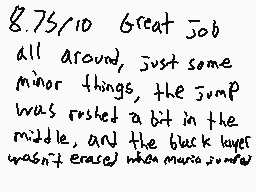 8.75/10 Great job
all around, just some
minor things, the jump
was rushed a bit in the
middle, and the black layer
wasn't erased when mario jumped